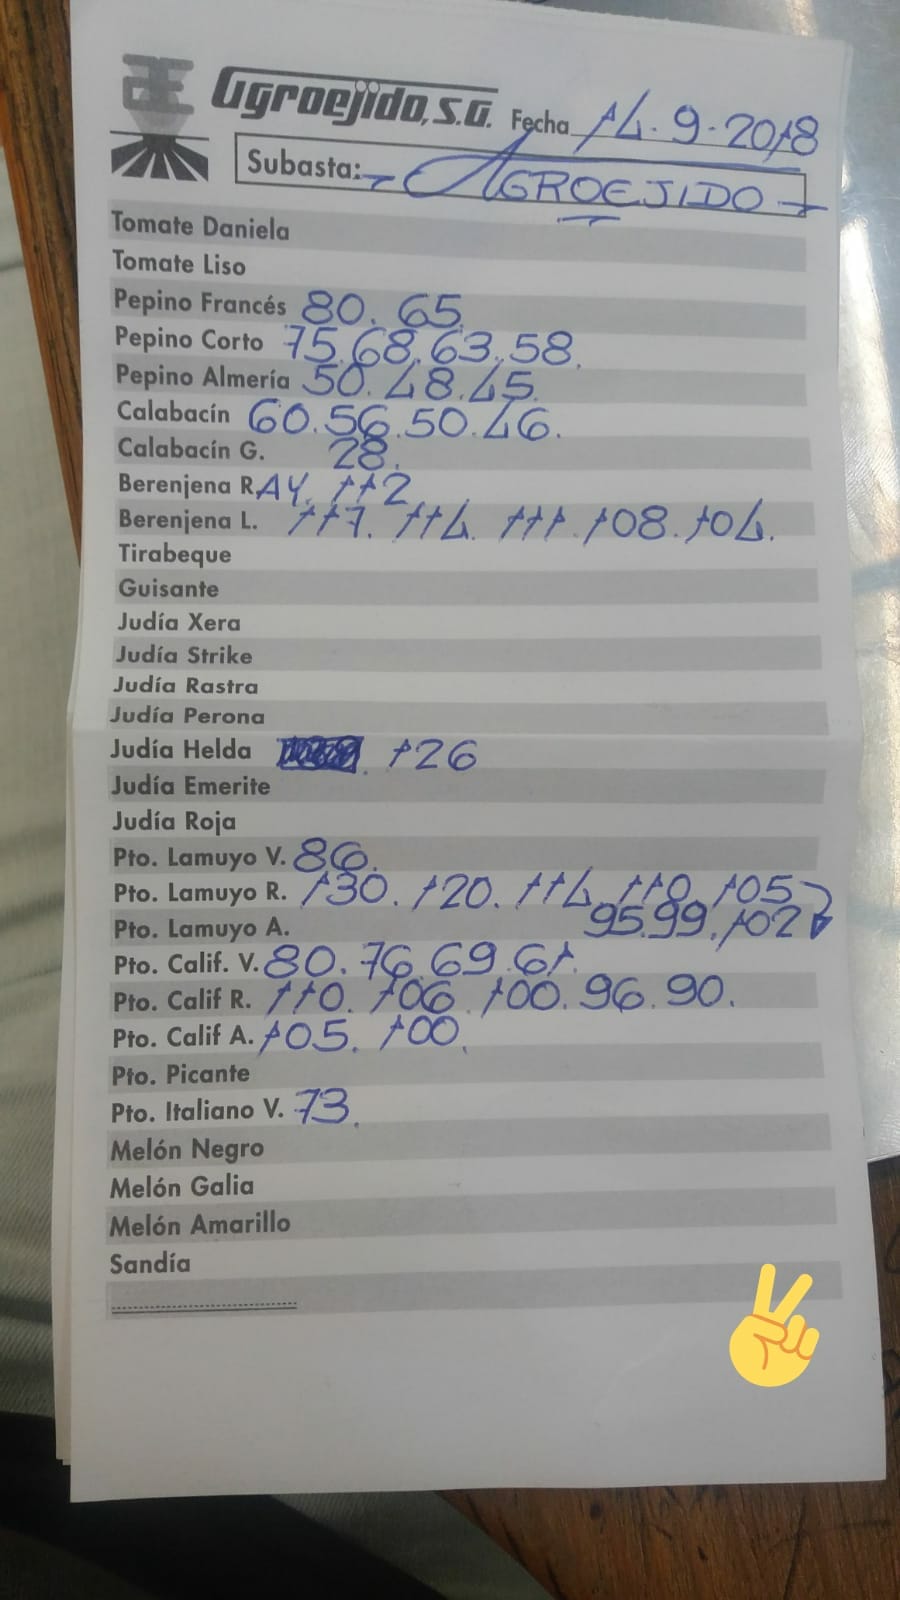 Agroejido, S.A. Fecha 14.9.2018
Subasta: - AGROEJIDO -
Tomate Daniela
Tomate Liso
Pepino Francés 80. 65
Pepino Corto 75.68.63.58.
Pepino Almería 50.48.45.
Calabacín 60.56.50.46.
Calabacín G. 28.
Berenjena R. AY. 112
Berenjena L. 117. 114. 111. 108. 104.
Tirabeque
Guisante
Judía Xera
Judía Strike
Judía Rastra
Judía Perona
Judía Helda 126
Judía Emerite
Judía Roja
Pto. Lamuyo V. 86.
Pto. Lamuyo R. 130. 120. 114. 110. 105
Pto. Lamuyo A. 95.99.102
Pto. Calif. V. 80. 76. 69. 61.
Pto. Calif R. 110. 106. 100. 96. 90.
Pto. Calif A. 105. 100.
Pto. Picante
Pto. Italiano V. 73.
Melón Negro
Melón Galia
Melón Amarillo
Sandía